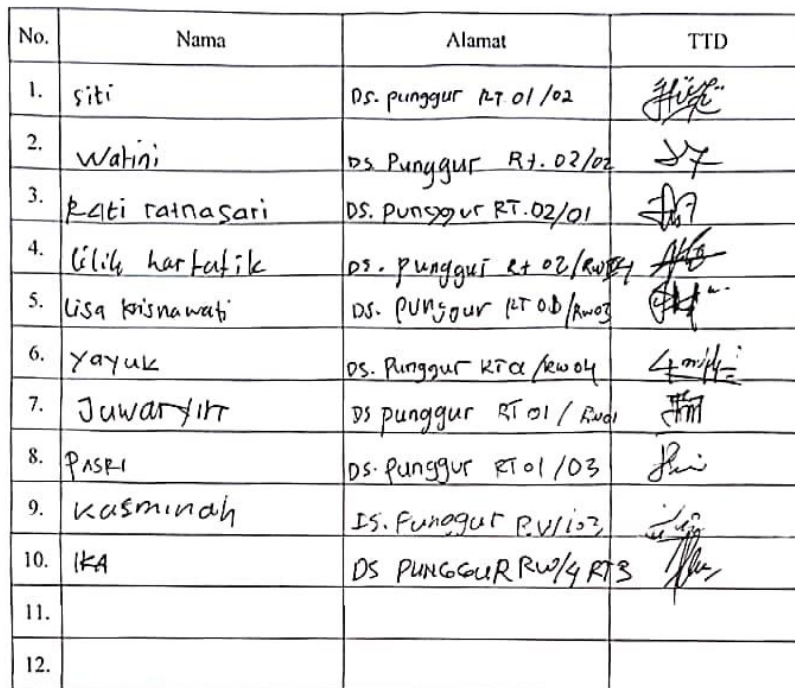 No. Nama Alamat TTD
1. Siti Ds. punggur RT 01/02
2. Watini Ds. Punggur Rt. 02/02
3. Rati ratnasari DS. punggur RT. 02/01
4. lilik hartatik Ds. punggur Rt 02/
5. Lisa krisnawati Ds. punggur RT /Rw03
6. Yayuk Ds. Punggur /Rw04
7. Ds punggur RT 01 / Rw01
8. PASRI Ds. punggur RT 01/03
9. Kasminah
10. IKA DS PUNGGUR RW/4 RT3
11.
12.